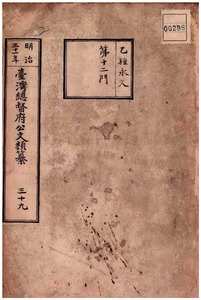 00298
乙種永久
第十二門
明治
三十一年
臺灣總督府公文類纂
三十九